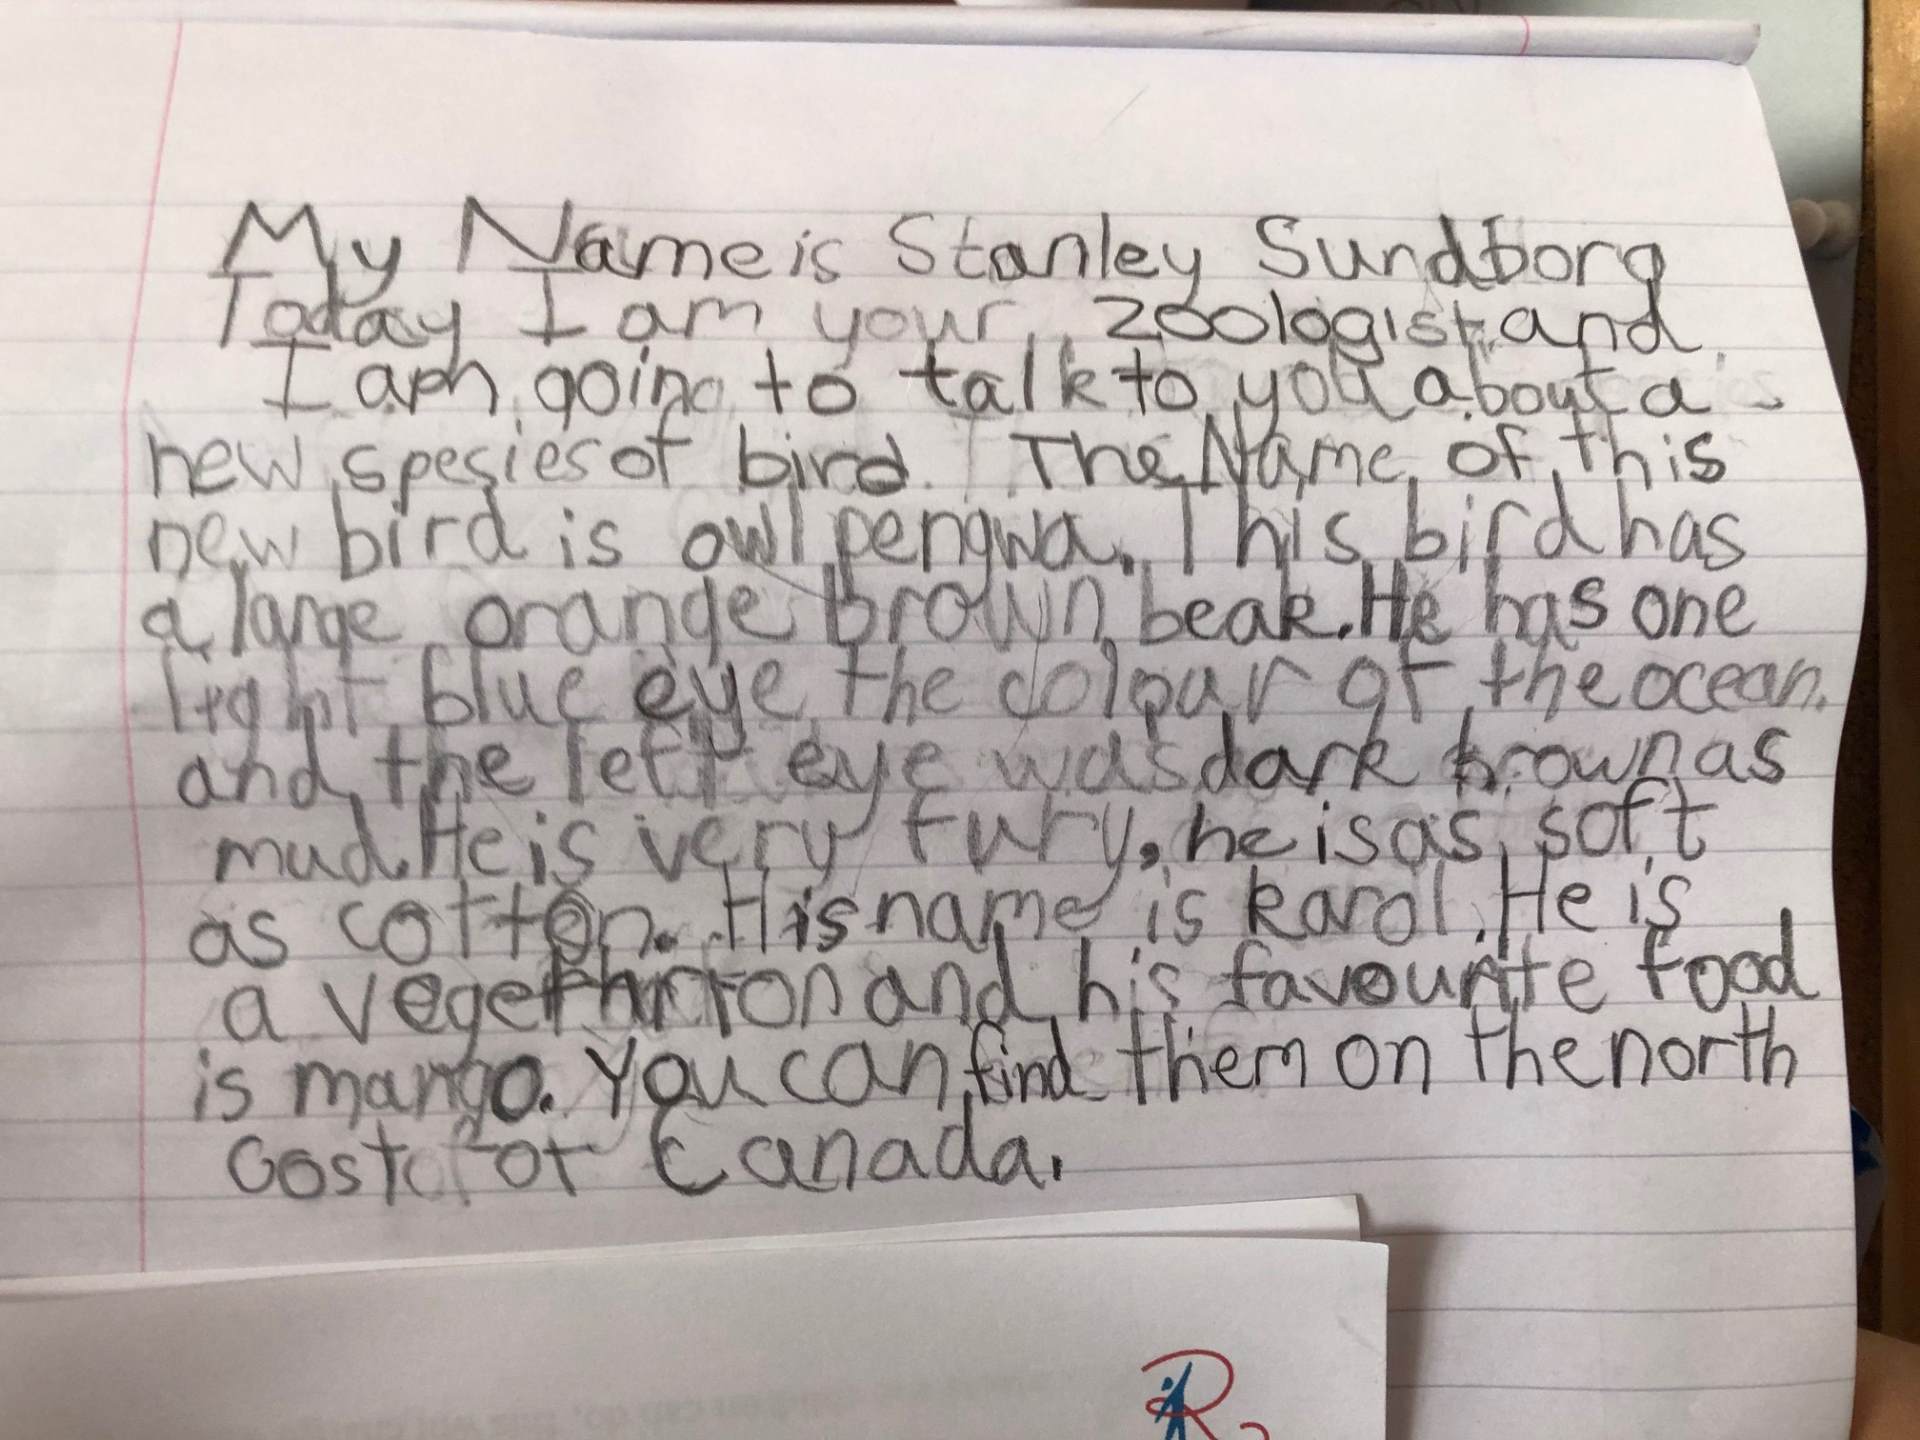 My Name is Stanley Sundborg
Today I am your zoologist and
I am going to talk to you about a
new spesies of bird. The Name of this
new bird is owl pengwa. This bird has
a large orange brown beak. He has one
light blue eye the colour of the ocean.
and the left eye was dark brown as
mud. He is very fury, he is as soft
as cotton. His name is karol. He is
a and his favourite food
is mango. You can find them on the north
cost of Canada.
R